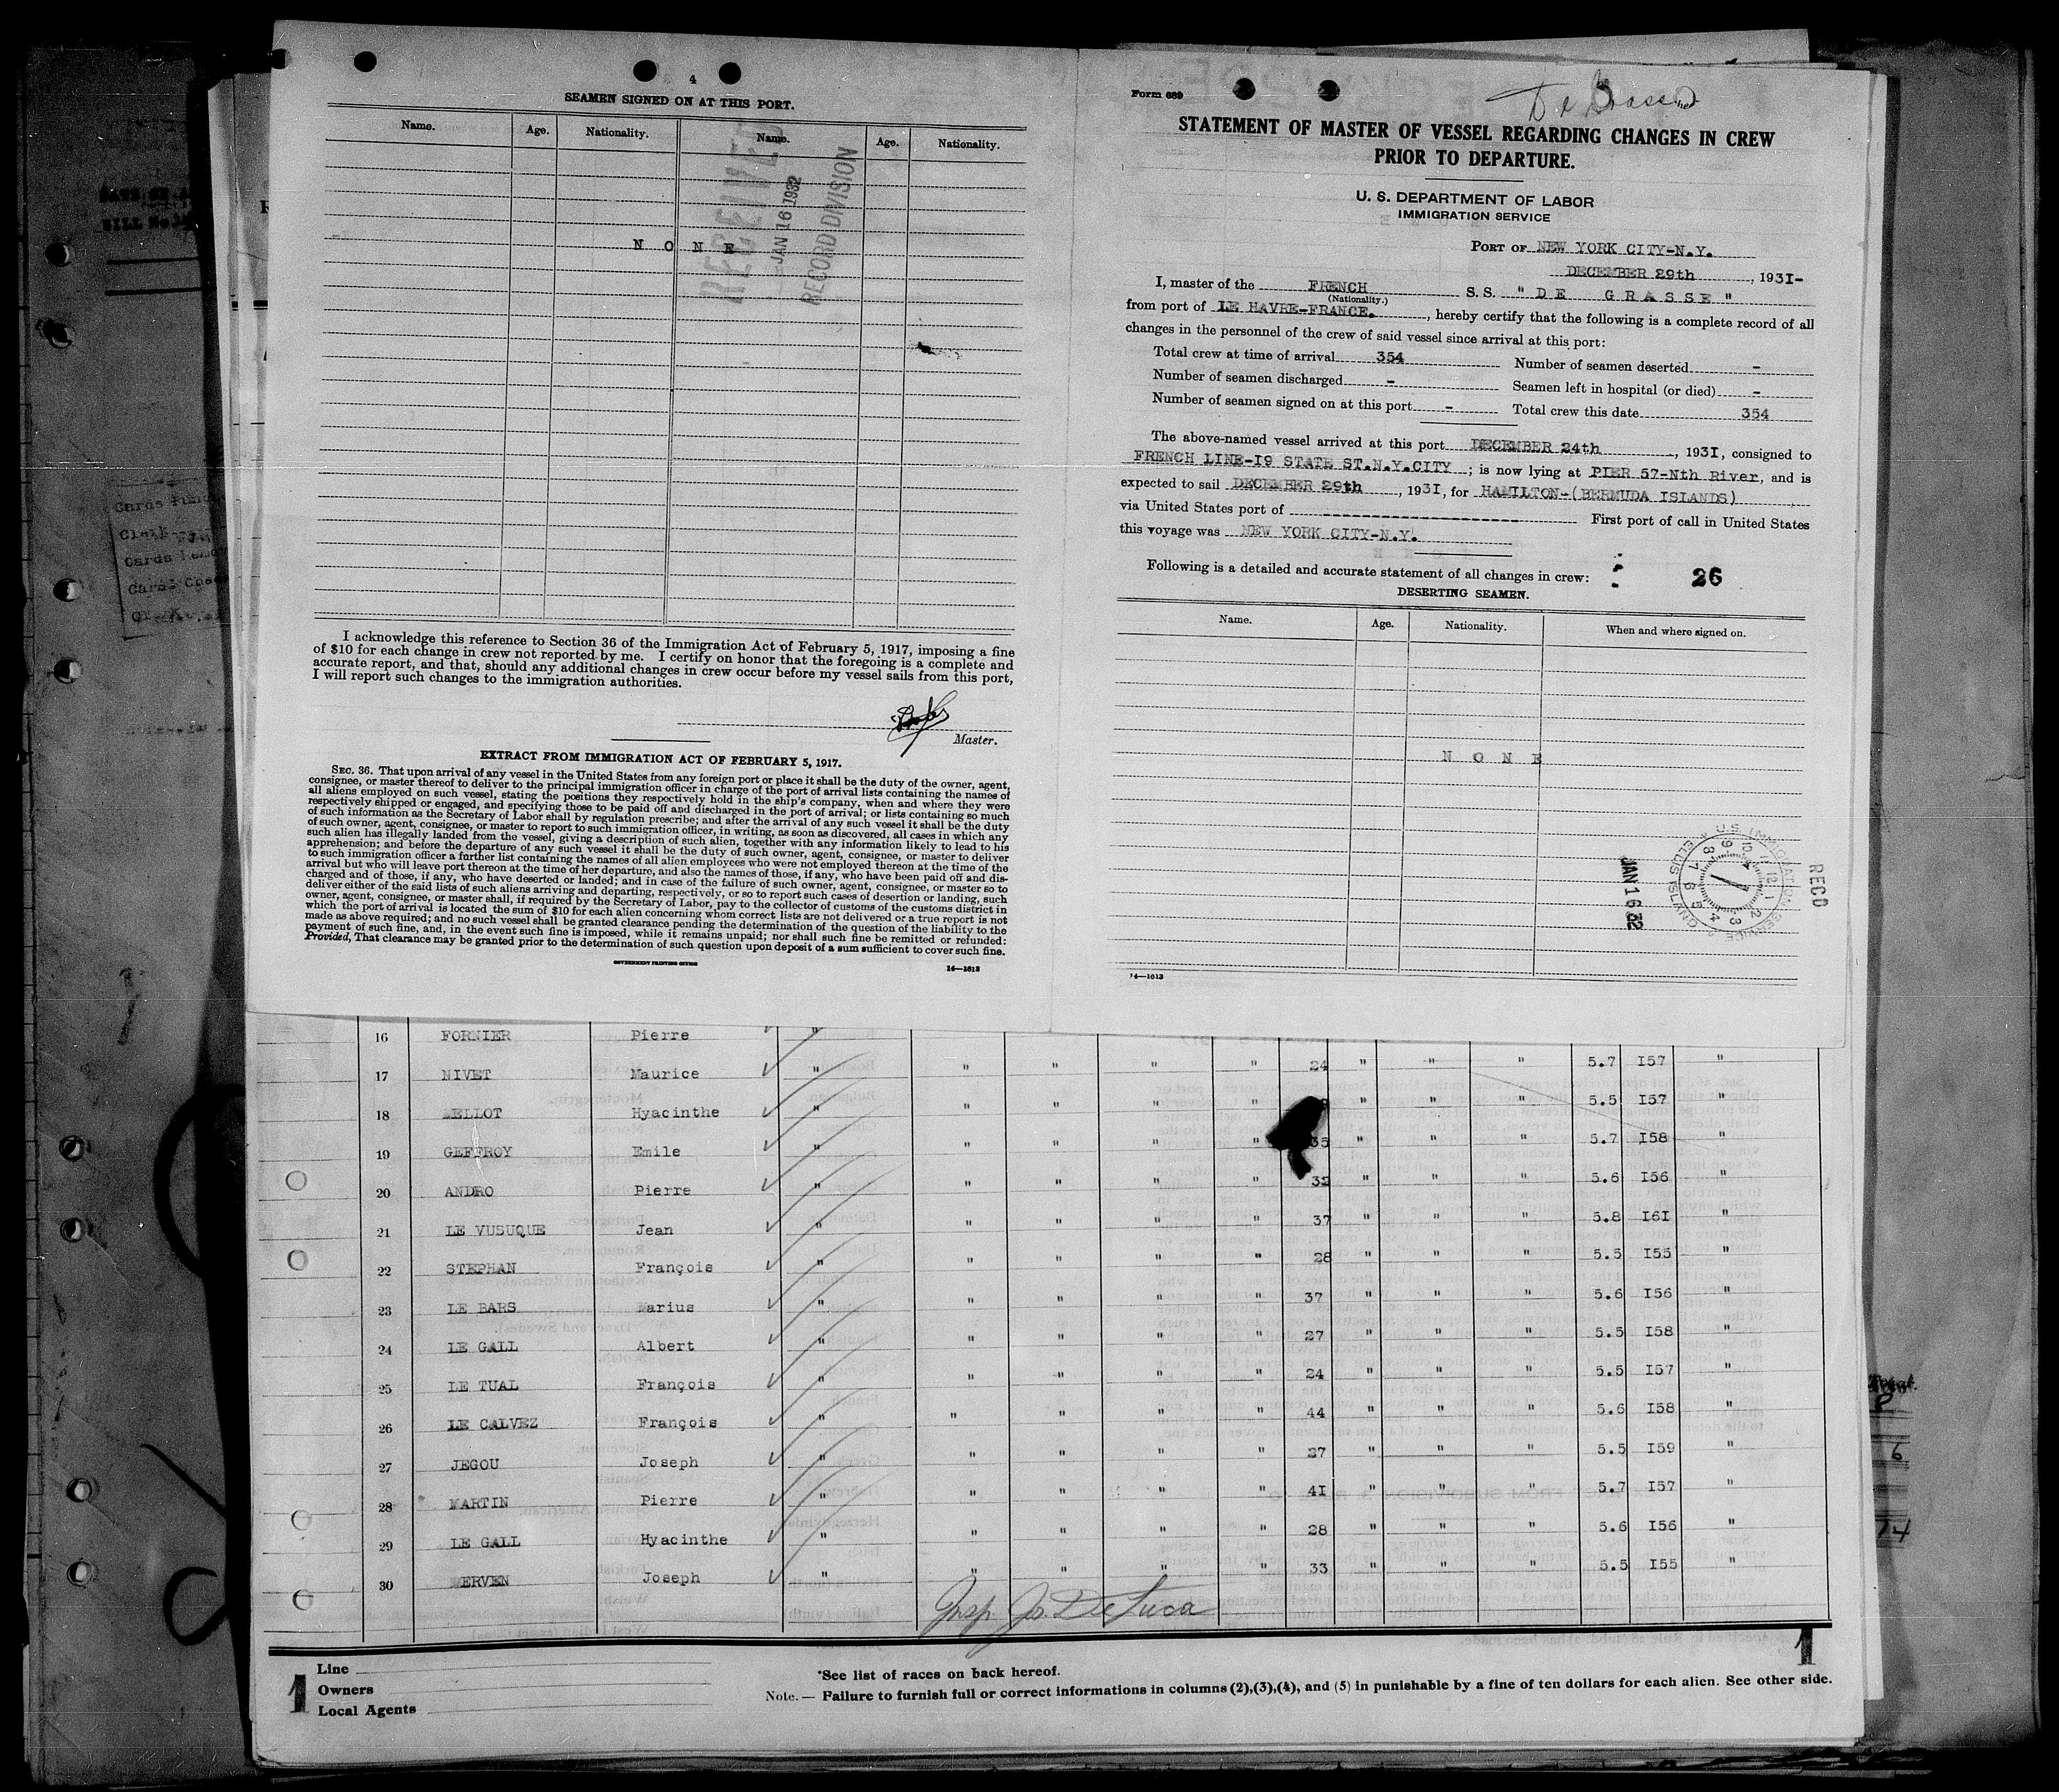 4
SEAMEN SIGNED ON AT THIS PORT.
Name. Age. Nationality. Name. Age. Nationality.
RECEIVED
JAN 16 1932
RECORD DIVISION
N O N E
I acknowledge this reference to Section 36 of the Immigration Act of February 5, 1917, imposing a fine
of $10 for each change in crew not reported by me. I certify on honor that the foregoing is a complete and
accurate report, and that, should any additional changes in crew occur before my vessel sails from this port,
I will report such changes to the immigration authorities.
Master.
EXTRACT FROM IMMIGRATION ACT OF FEBRUARY 5, 1917.
SEC. 36. That upon arrival of any vessel in the United States from any foreign port or place it shall be the duty of the owner, agent,
consignee, or master thereof to deliver to the principal immigration officer in charge of the port of arrival lists containing the names of
all aliens employed on such vessel, stating the positions they respectively hold in the ship's company, when and where they were
respectively shipped or engaged, and specifying those to be paid off and discharged in the port of arrival; or lists containing so much
of such information as the Secretary of Labor shall by regulation prescribe; and after the arrival of any such vessel it shall be the duty
of such owner, agent, consignee, or master to report to such immigration officer, in writing, as soon as discovered, all cases in which any
such alien has illegally landed from the vessel, giving a description of such alien, together with any information likely to lead to his
apprehension; and before the departure of any such vessel it shall be the duty of such owner, agent, consignee, or master to deliver
to such immigration officer a further list containing the names of all alien employees who were not employed thereon at the time of the
arrival but who will leave port thereon at the time of her departure, and also the names of those, if any, who have been paid off and dis-
charged and of those, if any, who have deserted or landed; and in case of the failure of such owner, agent, consignee, or master so to
deliver either of the said lists of such aliens arriving and departing, respectively, or so to report such cases of desertion or landing, such
owner, agent, consignee, or master shall, if required by the Secretary of Labor, pay to the collector of customs of the customs district in
which the port of arrival is located the sum of $10 for each alien concerning whom correct lists are not delivered or a true report is not
made as above required; and no such vessel shall be granted clearance pending the determination of the question of the liability to the
payment of such fine, and, in the event such fine is imposed, while it remains unpaid; nor shall such fine be remitted or refunded:
Provided, That clearance may be granted prior to the determination of such question upon deposit of a sum sufficient to cover such fine.
GOVERNMENT PRINTING OFFICE 14—1613
Form 689
De Grasse
STATEMENT OF MASTER OF VESSEL REGARDING CHANGES IN CREW
PRIOR TO DEPARTURE.
U. S. DEPARTMENT OF LABOR
IMMIGRATION SERVICE
PORT OF NEW YORK CITY-N.Y.
DECEMBER 29th, 193I-
I, master of the FRENCH S. S. "DE GRASSE"
(Nationality.)
from port of LE HAVRE-FRANCE., hereby certify that the following is a complete record of all
changes in the personnel of the crew of said vessel since arrival at this port:
Total crew at time of arrival 354 Number of seamen deserted -
Number of seamen discharged - Seamen left in hospital (or died) -
Number of seamen signed on at this port - Total crew this date 354
The above-named vessel arrived at this port DECEMBER 24th, 193I, consigned to
FRENCH LINE-I9 STATE ST.N.Y.CITY; is now lying at PIER 57-Nth River, and is
expected to sail DECEMBER 29th, 193I, for HAMILTON-(BERMUDA ISLANDS)
via United States port of ---------- First port of call in United States
this voyage was NEW YORK CITY-N.Y.
Following is a detailed and accurate statement of all changes in crew: 26
DESERTING SEAMEN.
Name. Age. Nationality. When and where signed on.
N O N E
JAN 16 32
U.S. IMMIGRATION SERVICE ELLIS ISLAND
REC'D
14—1613
16 FORNIER Pierre "
17 NIVET Maurice " " " " " 24 " " " 5.7 I57 "
18 MELLOT Hyacinthe " " " " " " " " 5.5 I57 "
19 GEFFROY Emile " " " " 35 " " " 5.7 I58 "
20 ANDRO Pierre " " " " " 32 " " " 5.6 I56 "
21 LE VUSUQUE Jean " " " " " 37 " " " 5.8 I6I "
22 STEPHAN François " " " " " 28 " " " 5.5 I55 "
23 LE BARS Marius " " " " " 37 " " " 5.6 I56 "
24 LE GALL Albert " " " " " 27 " " " 5.5 I58 "
25 LE TUAL François " " " " " 24 " " " 5.5 I57 "
26 LE CALVEZ François " " " " " 44 " " " 5.6 I58 "
27 JEGOU Joseph " " " " " 27 " " " 5.5 I59 "
28 MARTIN Pierre " " " " " 4I " " " 5.7 I57 "
29 LE GALL Hyacinthe " " " " " 28 " " " 5.6 I56 "
30 MERVEN Joseph " " " " " 33 " " " 5.5 I55 "
Insp. Jo. De Luca
1 1
Line
Owners
Local Agents
*See list of races on back hereof.
Note.— Failure to furnish full or correct informations in columns (2),(3),(4), and (5) in punishable by a fine of ten dollars for each alien. See other side.